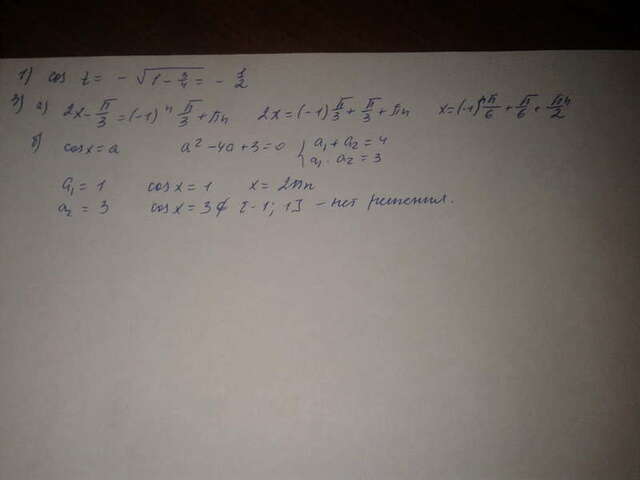 1) cos t = - √(1 - 3/4) = - 1/2
3) а) 2x - π/3 = (-1)ⁿ π/3 + πn 2x = (-1) π/3 + π/3 + πn x = (-1)ⁿ π/6 + π/6 + πn/2
б) cos x = a a² - 4a + 3 = 0 { a₁ + a₂ = 4
a₁ · a₂ = 3
a₁ = 1 cos x = 1 x = 2πn
a₂ = 3 cos x = 3 ∉ [-1; 1] - нет решения.